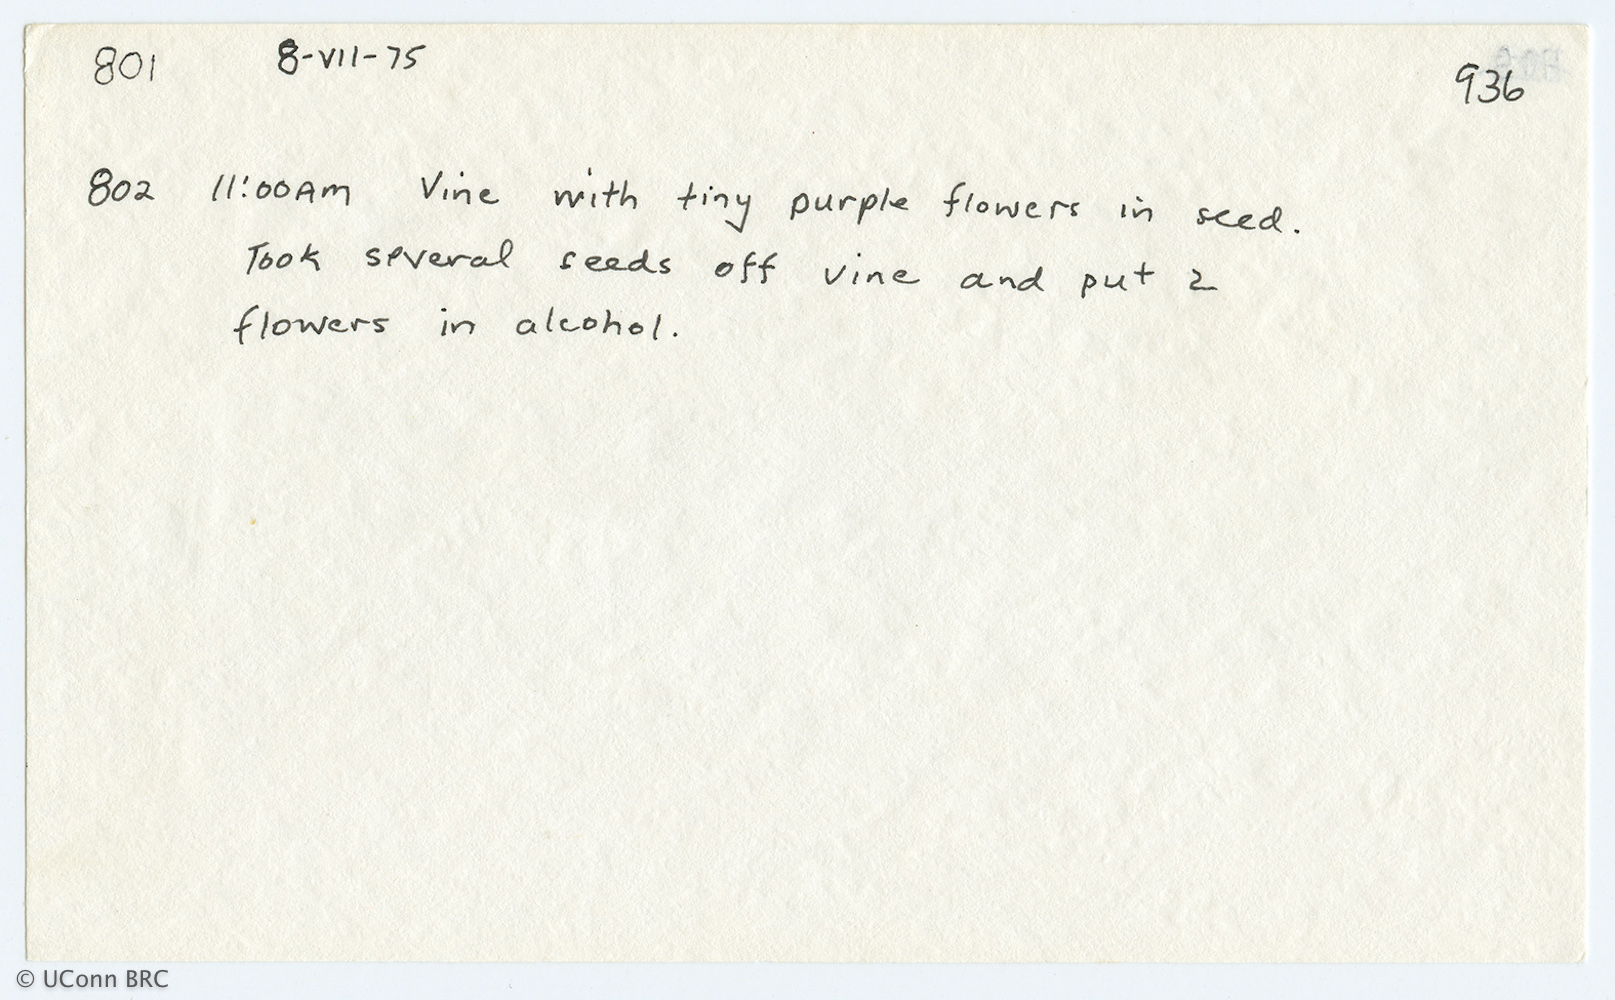 801 8-VII-75 936
802 11:00AM Vine with tiny purple flowers in seed.
Took several seeds off vine and put 2
flowers in alcohol.
© UConn BRC